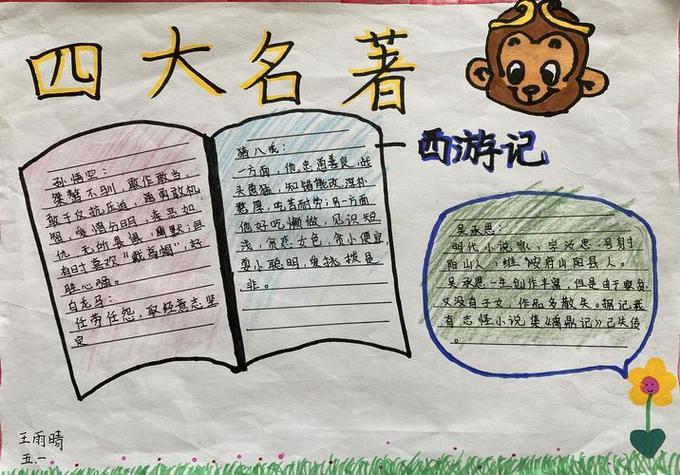 四大名著
西游记
孙悟空：
桀骜不驯，敢作敢当，
敢于反抗压迫，英勇敢机
智，爱憎分明，疾恶如
仇，无所畏惧，幽默；且
有时喜欢"戴高帽"，好
胜心强。
白龙马：
任劳任怨，取经意志坚
定
猪八戒：
一方面，他忠勇善良，战
头勇猛，知错能改，淳朴
憨厚，吃苦耐劳；另一方面
他好吃懒做，见识短
浅，贪恋女色，贪小便宜，
耍小聪明，爱挑拨是
非。
吴承恩：
明代小说家，字汝忠，号射
阳山人，淮安府山阳县人。
吴承恩一生创作丰富，但是由于家贫，
又没有子女，作品多散失。据记载
有志怪小说集《禹鼎记》已失传
。
王雨晴
五.一